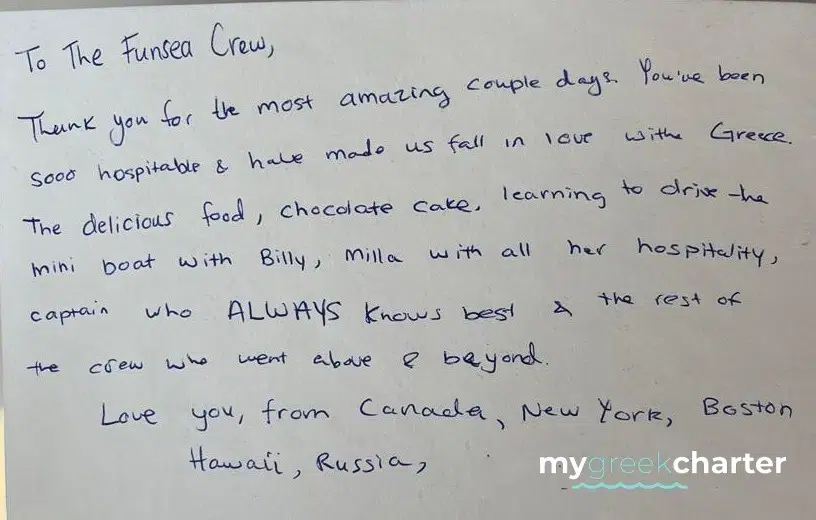 To The Funsea Crew,
Thank you for the most amazing couple days. You've been
sooo hospitable & have made us fall in love withe Greece.
The delicious food, chocolate cake, learning to drive the
mini boat with Billy, Milla with all her hospitality,
captain who ALWAYS knows best & the rest of
the crew who went above & beyond.
Love you, from Canada, New York, Boston
Hawaii, Russia,
mygreekcharter